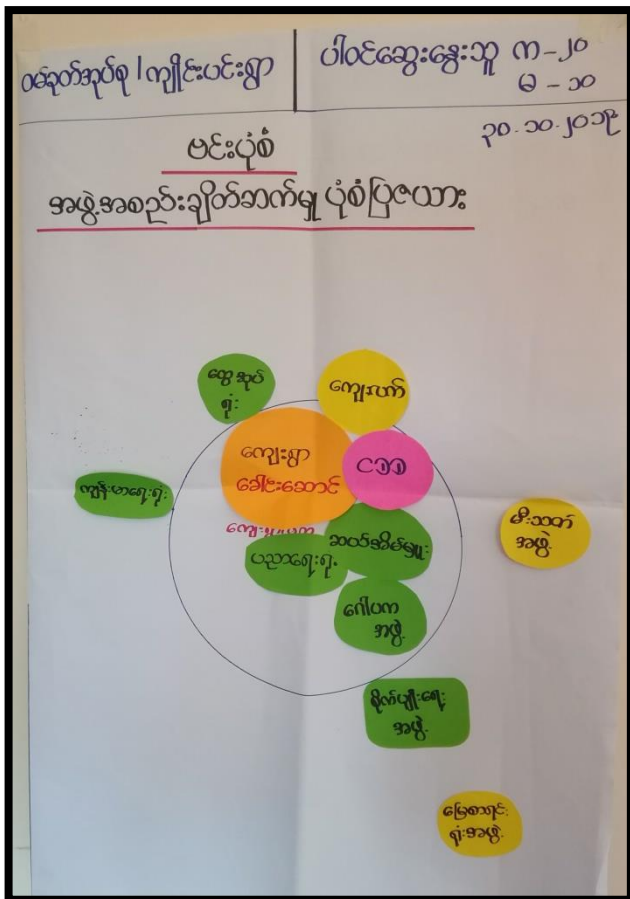 ဝမ်ခုတ်အုပ်စု / ကျိုင်းပင်းရွာ
ပါဝင်ဆွေးနွေးသူ က-၂၀
မ - ၁၀
၃၀.၁၀.၂၀၁၉
ဗင်းပုံစံ
အဖွဲ့အစည်းချိတ်ဆက်မှု ပုံစံပြဇယား
ထွေအုပ်
ရုံး
ကျေးလက်
ကျေးရွာ
ခေါင်းဆောင်
ငဒဒ
ကျန်းမာရေးရုံး
ဆယ်အိမ်မှူး
ပညာရေးရုံး
မီးသတ်
အဖွဲ့
ဂေါပက
အဖွဲ့
စိုက်ပျိုးရေး
အဖွဲ့
မြေစာရင်း
ရုံးအဖွဲ့